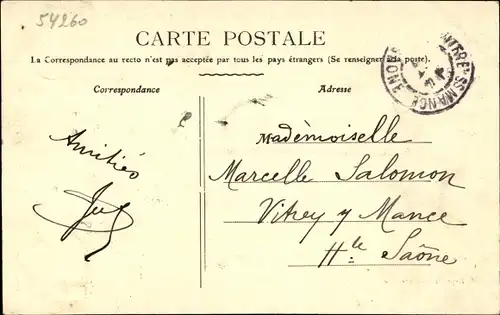 54260
CARTE POSTALE
La Correspondance au recto n'est pas acceptée par tous les pays étrangers (Se renseigner à la poste).
Correspondance
Adresse
Amitiés
Mademoiselle
Marcelle Salomon
Vitrey y Mance
Hte Saône